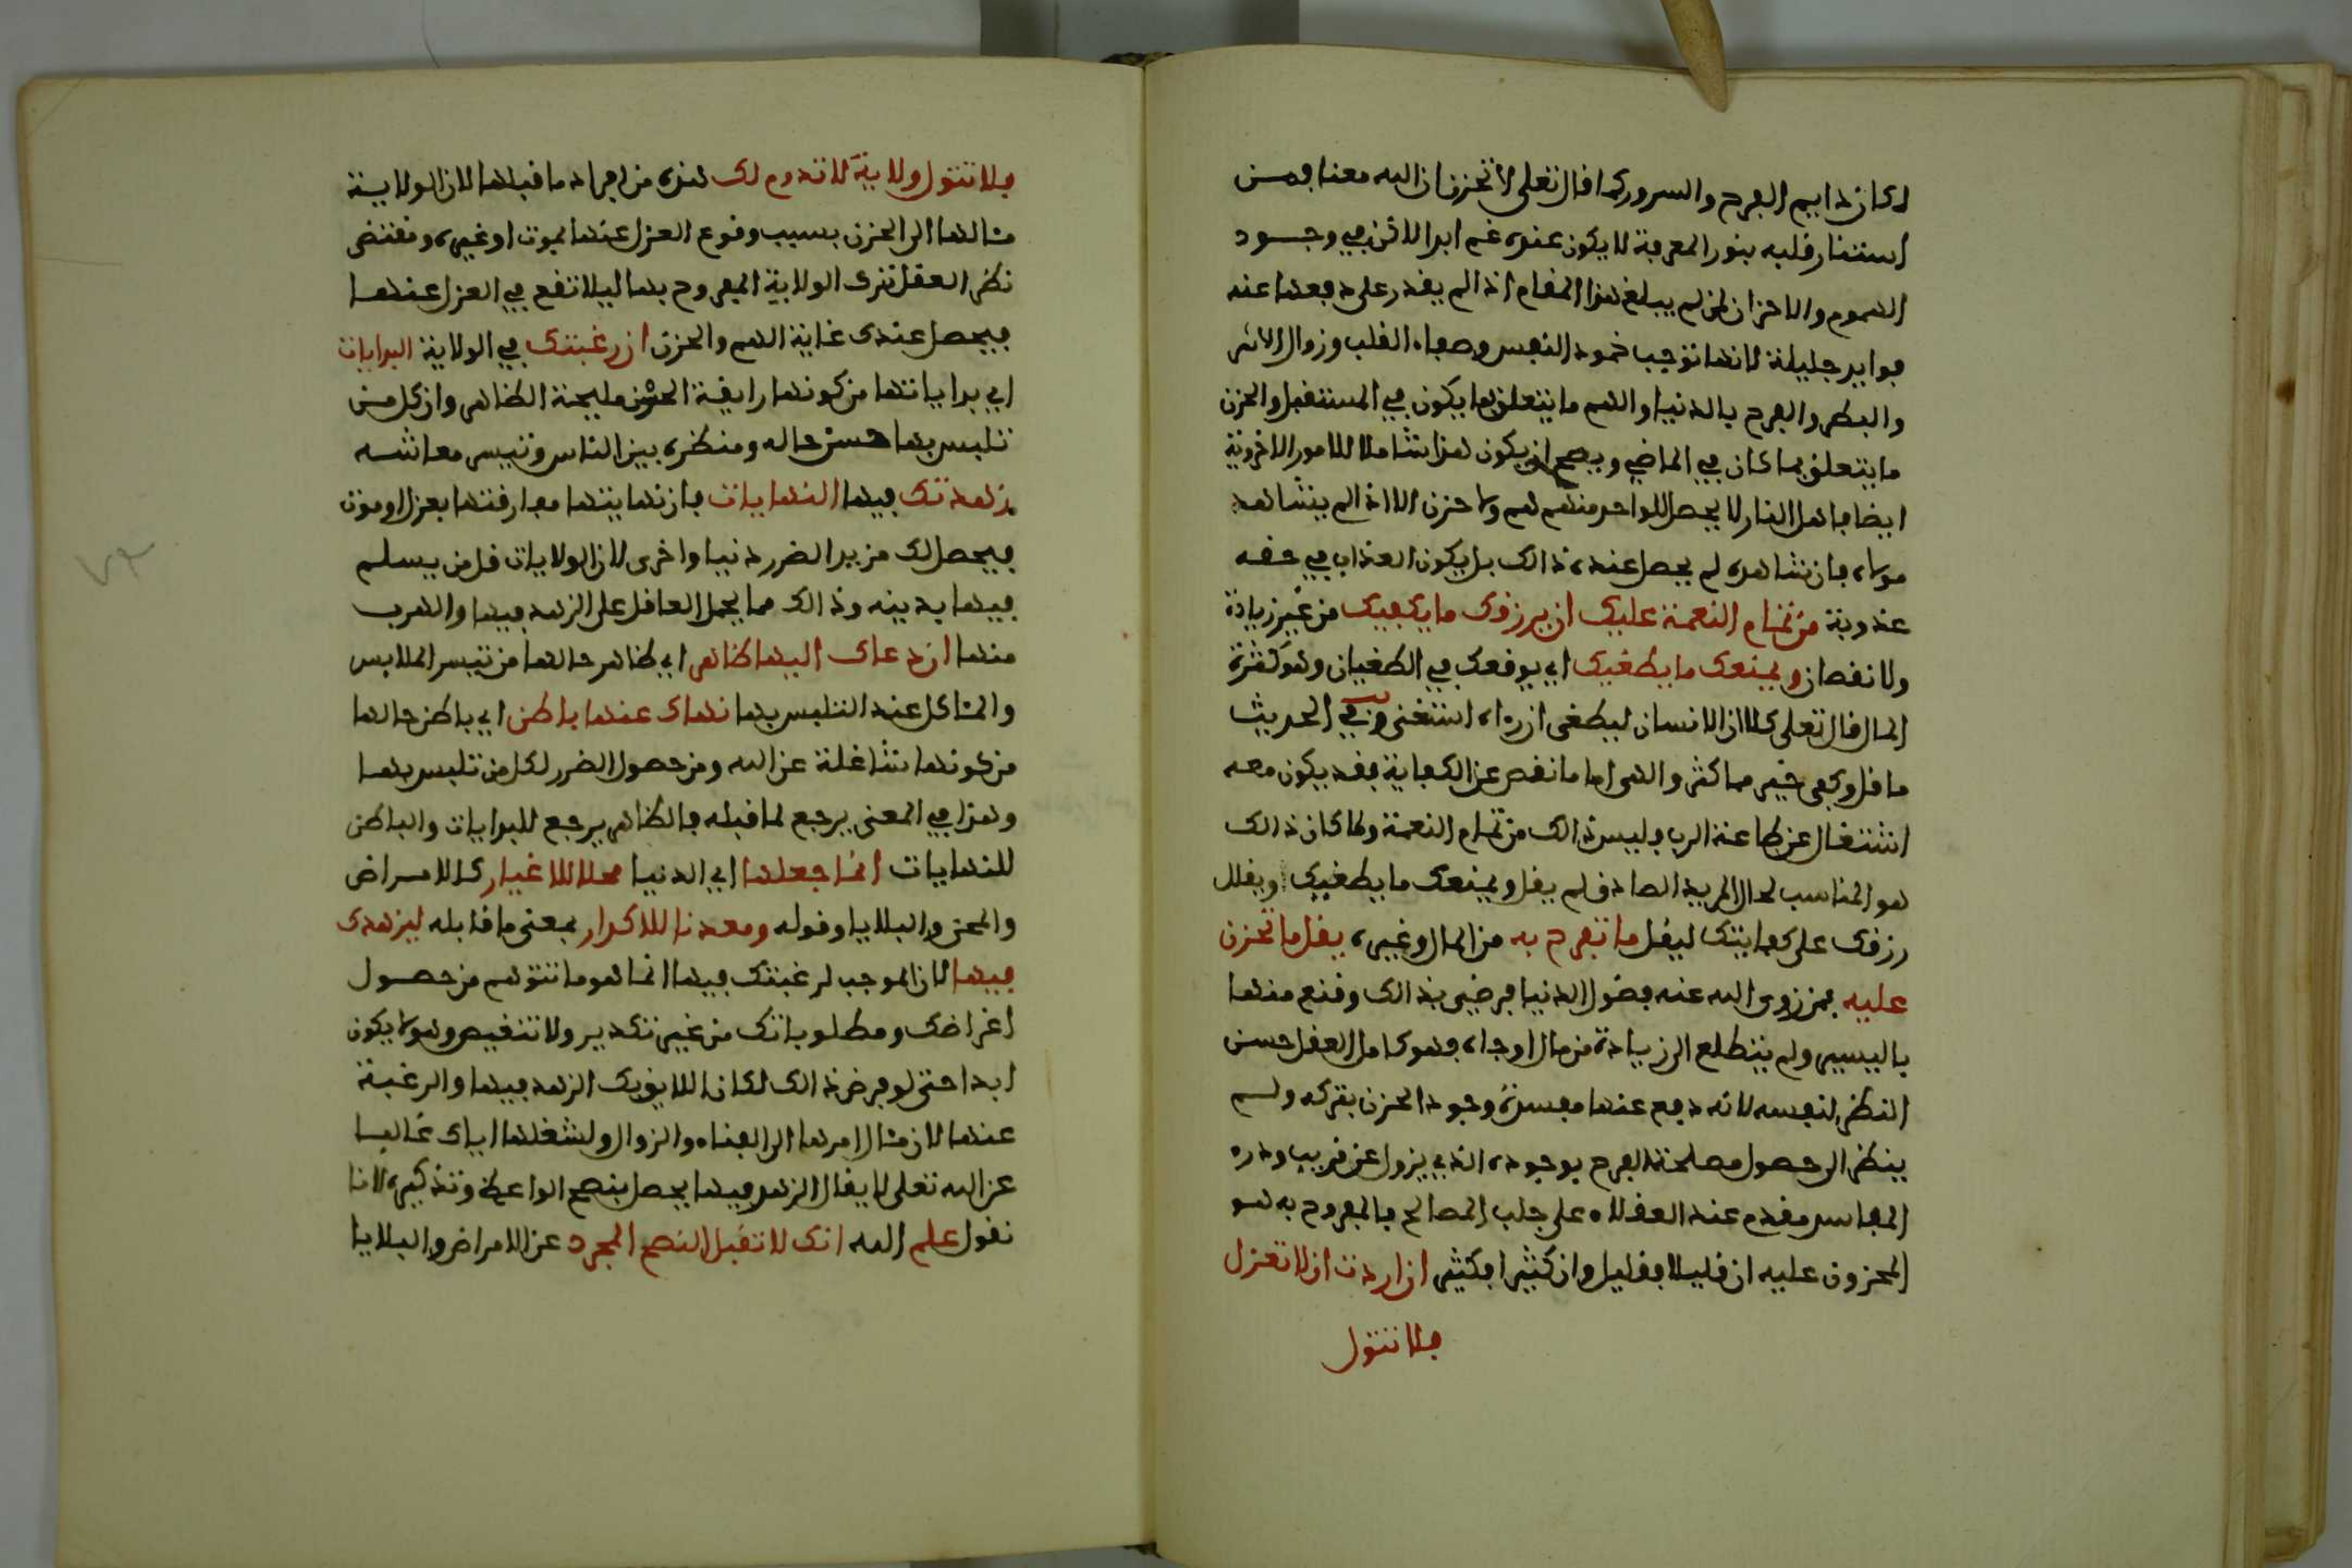 لكان دايم الفرح والسرور كما قال تعلى لا تحزن ان الله معنا فمن
استنار قلبه بنور المعرفة لا يكون عنده غم ابدا لاكن في وجود
الهموم والاحزان لمن لم يبلغ هذا المقام اذا لم يقدر على دفعها عنه
فوايد جليلة لانها توجب خمود النفس وصفاء القلب وزوال الاشر
والبطر والفرح بالدنيا والهم ما يتعلق بما يكون في المستقبل والحزن
ما يتعلق بما كان في الماضي ويصح ان يكون هذا شاملا للامور الاخروية
ايضا فاهل النار لا يحصل لواحد منهم هم ولا حزن الا اذا لم يشاهد
مولاه فان شاهده لم يحصل عنده ذالك بل يكون العذاب في حقه
عذوبة من تمام النعمة عليك ان يرزقك ما يكفيك من غير زيادة
ولا نقصان ويمنعك ما يطغيك اي يوقعك في الطغيان وهو كثرة
المال قال تعلى كلا ان الانسان ليطغى ان رءاه استغنى وفي الحديث
ما قل وكفى خير مما كثر والهى اما ما نقص عن الكفاية فقد يكون معه
اشتغال عن طاعة الرب وليس ذالك من تمام النعمة ولما كان ذالك
هو المناسب لحال المريد الصادق لم يقل ويمنعك ما يطغيك ويقلل
رزقك على كفايتك ليقل ما تفرح به من المال وغيره يقل ما تحزن
عليه فمن زوى الله عنه فضول الدنيا فرضي بذالك وقنع منها
باليسير ولم يتطلع الى زيادة من مال او جاه فهو كامل العقل حسن
النظر لنفسه لانه دفع عنها مفسدة وجود الحزن بتركه ولم
ينظر الى حصول مصلحة الفرح بوجوده الذي يزول عن قريب ودره
المفاسد مقدم عند العقلاء على جلب المصالح فالمفروح به هو
المحزون عليه ان قليلا فقليل وان كثيرا فكثير ان اردت ان لا تعزل
فلا تتول
فلا تتول ولاية لا تدوم لك هذه من افراد ما قبلها لان الولاية
مئالها الى الحزن بسبب وقوع العزل عنها بموت او غيره ومقتضى
نظر العقل ترك الولاية المفروح بها ليلا تقع في العزل عنها
فيحصل عندك غاية الهم والحزن ان رغبتك في الولاية البدايات
اي بداياتها من كونها رايقة الحسن مليحة الظاهر وان كل من
تلبس بها حسن حاله ومنظره بين الناس وتيسر معاشه
زهدتك فيها النهايات فان نهايتها مفارقتها بعزل او موت
فيحصل لك مزيد الضرر دنيا واخرى لان الولايات قل من يسلم
فيها بدينه وذالك مما يحمل العاقل على الزهد فيها والهرب
منها ان دعاك اليها ظاهر اي ظاهر حالها من تيسر الملابس
والمئاكل عند التلبس بها نهاك عنها باطن اي باطن حالها
من كونها شاغلة عن الله ومن حصول الضرر لكل من تلبس بها
وهذا في المعنى يرجع لما قبله فالظاهر يرجع للبدايات والباطن
للنهايات انما جعلها اي الدنيا محلا للاغيار كالامراض
والمحن والبلايا وقوله ومعدنا للاكدار بمعنى ما قابله ليزهدك
فيها لان الموجب لرغبتك فيها انما هو ما تتوهم من حصول
اغراضك ومطلوباتك من غير تكدير ولا تنغيص وهو لا يكون
ابدا حتى لو فرض ذالك لكان اللايق بك الزهد فيها والرغبة
عنها لان مئال امرها الى الفناء والزوال ولشغلها اياك غالبا
عن الله تعلى لا يقال الزهد فيها يحصل بنصح الواعظ وتذكيره لانا
نقول علم الله انك لا تقبل النصح المجرد عن الامراض والبلايا